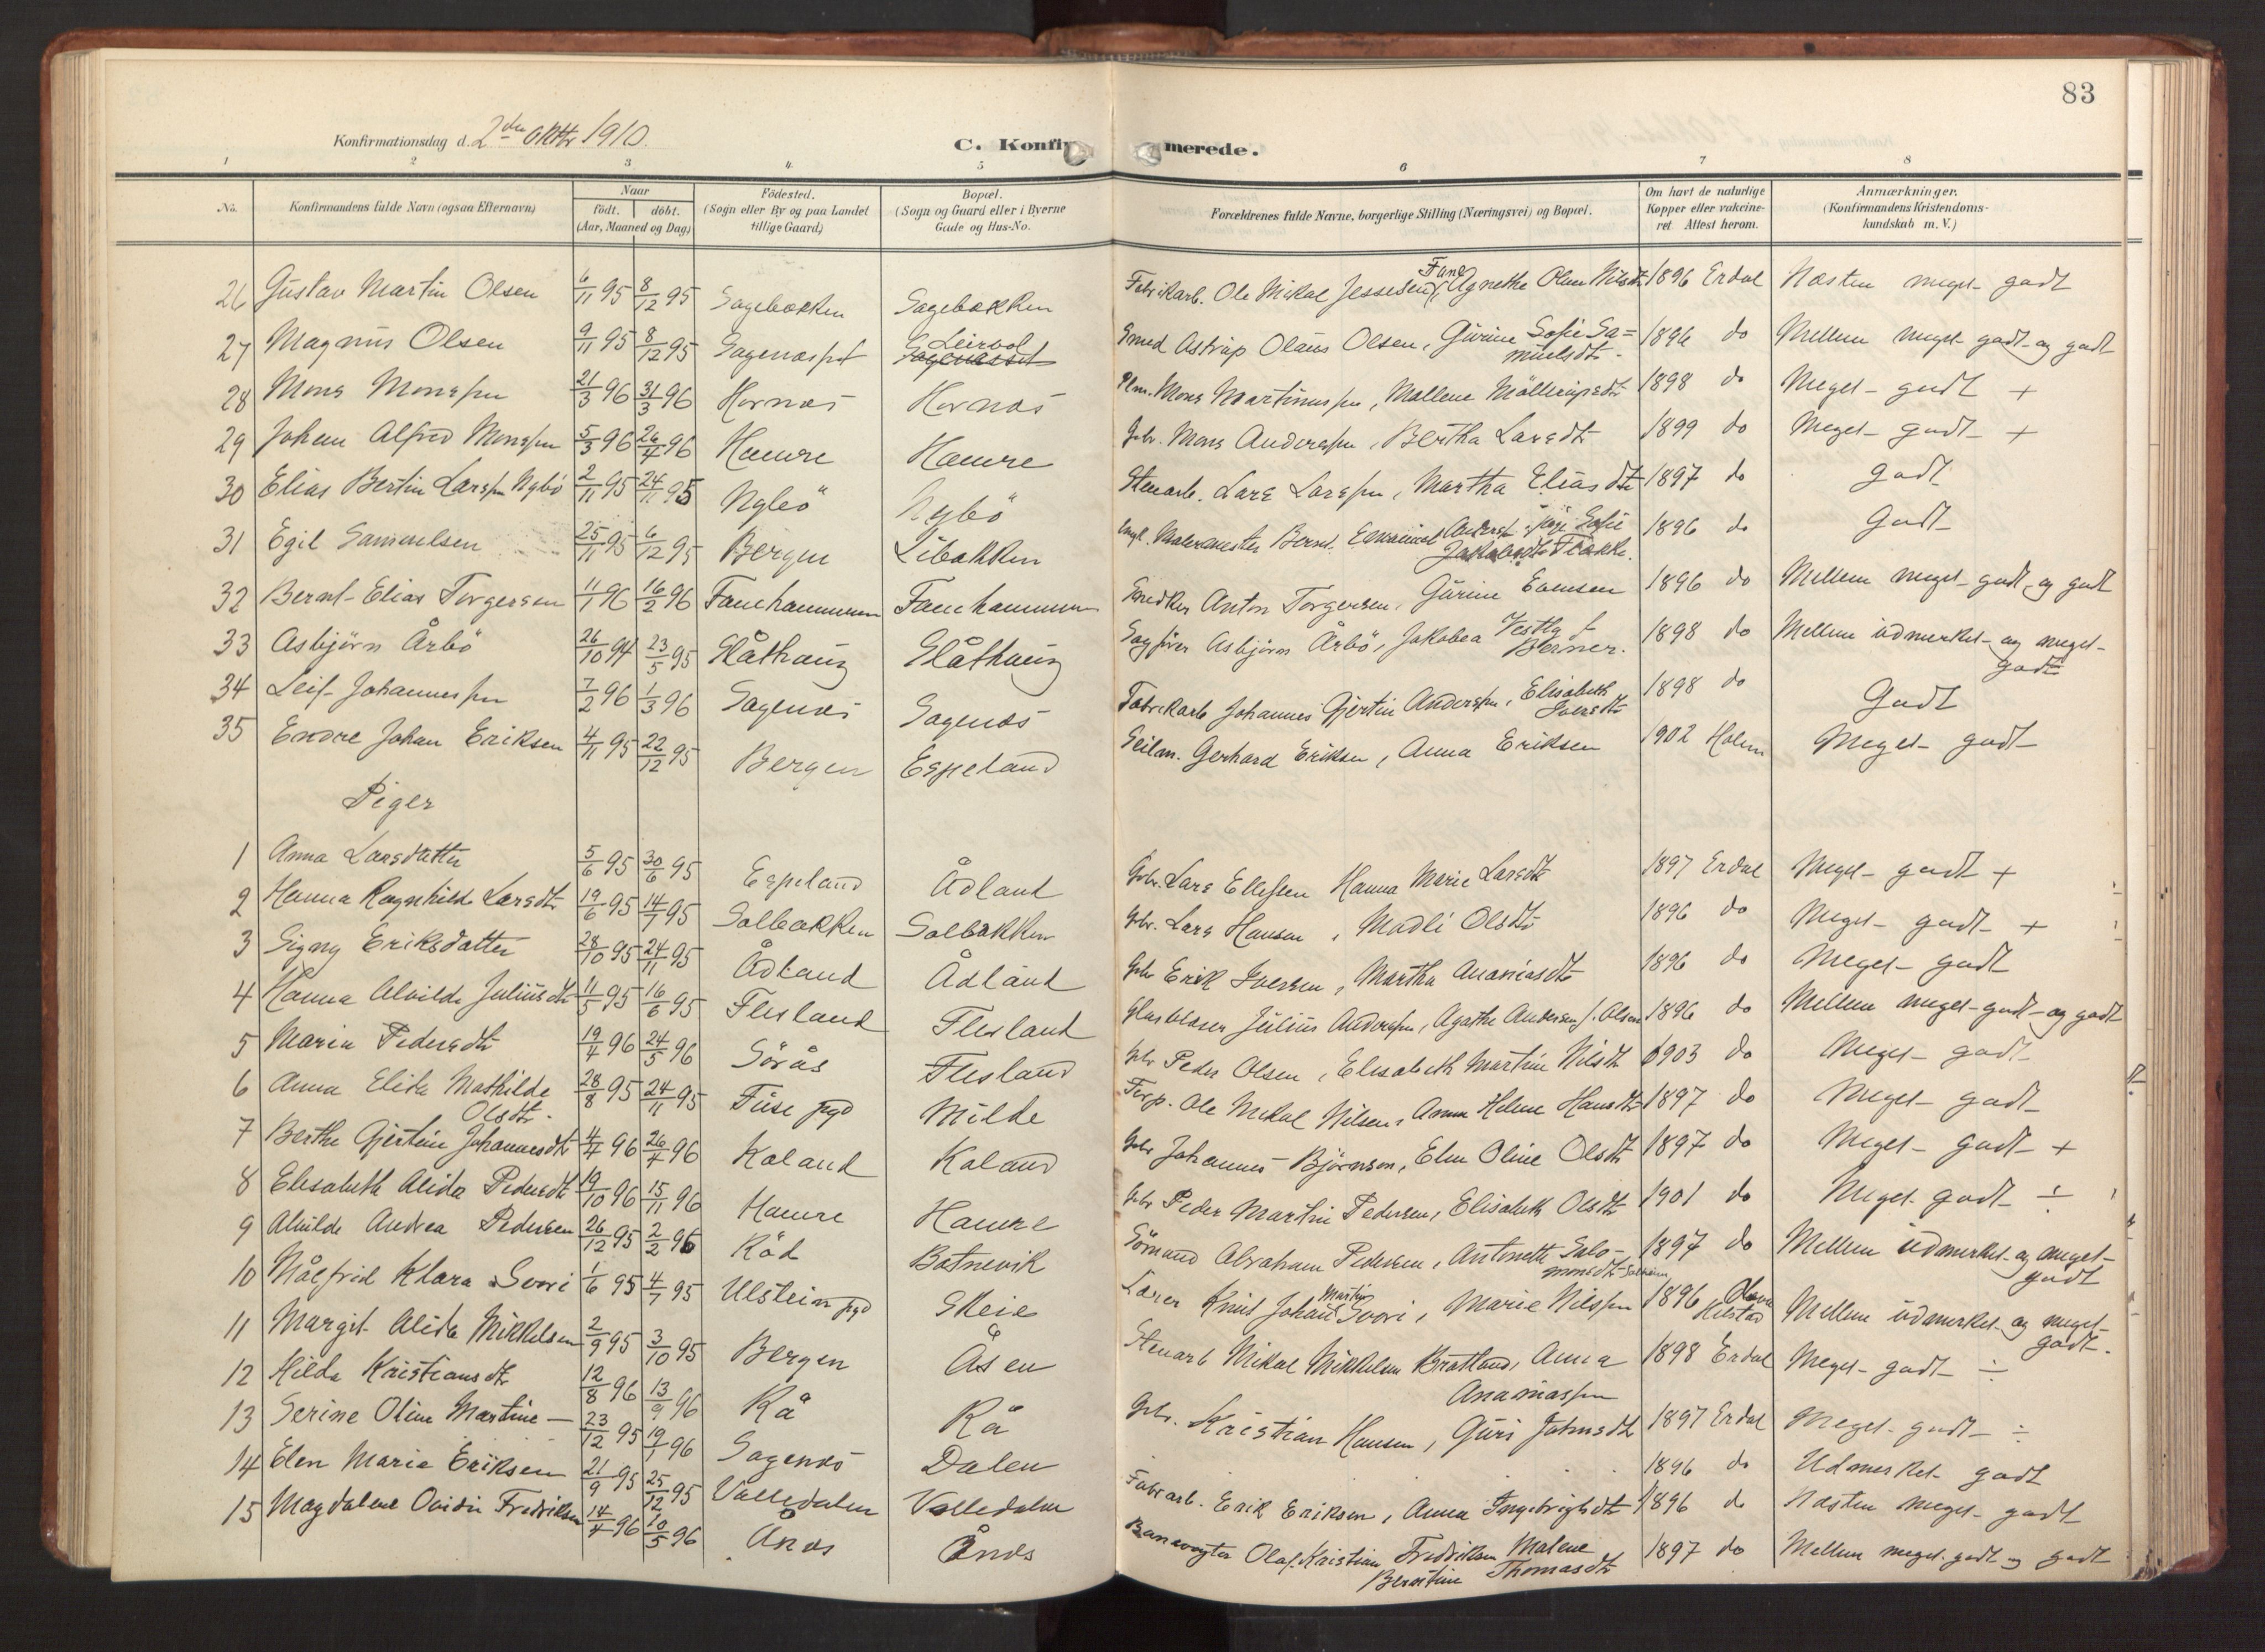 83
Konfirmationsdag d. 2den Oktbr 1910.
C. Konfirmerede.
1 2 3 4. 5 6 7 8
No. Konfirmandens fulde Navn (ogsaa Efternavn) Naar födt. döbt. (Aar, Maaned og Dag) Födested. (Sogn eller By og paa Landet tillige Gaard) Bopæl. (Sogn og Gaard eller i Byerne Gade og Hus-No. Forældrenes fulde Navne, borgerlige Stilling (Næringsvei) og Bopæl. Om havt de naturlige Kopper eller vakcineret Attest herom. Anmærkninger. (Konfirmandens Kristendomskundskab m. V.)
26 Gustav Martin Olsen 6/11 95 8/12 95 Sagebakken Sagebakken Fabrikarb. Ole Mikal Jessesen Fane, Agnethe Nilsdt 1896 Erdal Næsten meget godt
27 Magnus Olsen 9/11 95 8/12 95 Sagenæs Leirvol Smed Astrup Olaus Olsen, Gurine Sofie Samuelsdt. 1896 do Mellem meget godt og godt
28 Mons Monssen 21/3 96 31/3 96 Hornæs Hornæs Plm. Mons Martinussen, Mallene Möllerupsdt 1898 do Meget godt +
29 Johan Alfred Monssen 5/3 96 26/4 96 Hamre Hamre Gbr. Mons Anderssen, Bertha Larsdt 1899 do Meget godt +
30 Elias Bertin Larssen Nybö 2/11 95 24/11 95 Nybö Nybö Stenarb. Lars Larssen, Martha Eliasdt 1897 do godt
31 Egil Samuelsen 25/11 95 6/12 95 Bergen Libakken Malermester Bernt Sofie Jakobsdt Flække. 1896 do Godt
32 Bernt Elias Torgersen 11/1 96 16/2 96 Fanehammeren Fanehammeren Snedker Anton Torgersen, Gurine Evensen 1896 do Mellem meget godt og godt
33 Asbjörn Årbö 26/10 94 23/5 95 Slåthaug Slåthaug Sagförer Asbjörn Årbö, Jakobea Vestly f. Berner. 1898 do Mellem udmerket og meget godt
34 Leif Johannessen 7/2 96 1/3 96 Sagenæs Sagenæs Fabrikarb Johannes Gjertin Anderssen, Elisabeth Iversdt 1898 do Godt
35 Endre Johan Eriksen 4/11 95 22/12 95 Bergen Espeland Seilm. Gerhard Eriksen, Anna Eriksen 1902 Holm Meget godt
Piger
1 Anna Larsdatter 5/6 95 30/6 95 Espeland Ådland Gbr. Lars Ellefsen Hanna Marie Larsdt 1897 Erdal Meget godt +
2 Hanna Ragnhilde Larsdt 19/6 95 14/7 95 Solbakken Solbakken Gbr. Lars Hansen, Madli Olsdt 1896 do Meget godt +
3 Signy Eriksdatter 28/10 95 24/11 95 Ådland Ådland Gbr Erik Iversen, Martha Ananiasdt 1896 do Meget godt
4 Hanna Alvilde Juliusdt 11/5 95 16/6 95 Flesland Flesland Glasblæser Julius Anderssen, Agathe Andersen f. Olsen 1896 do Mellem meget godt og godt
5 Marie Pedersdt 19/4 96 24/5 96 Sörås Flesland Gbr Peder Olsen, Elisabeth Martine Nilsdt 1903 do Meget godt
6 Anna Elida Mathilde Olsdt. 28/8 95 24/11 95 Fuse pgd Milde Forp. Ole Mikal Nilsen, Anna Helene Hansdt 1897 do Meget godt
7 Berthe Gjertine Johannesdt 4/4 96 26/4 96 Kaland Kaland Gbr Johannes Björnson, Elen Oline Olsdt 1897 do Meget godt +
8 Elisabeth Alida Pedersdt 19/10 96 15/11 96 Hamre Hamre Gbr Peder Martin Pedersen, Elisabeth Olsdt 1901 do Meget godt ÷
9 Alvilde Andrea Pedersen 26/12 95 2/2 96 Röd Botnevik Sömand Abraham Pedersen, Antonette Salomonsdt 1897 do Mellem udmerket og meget godt
10 Målfrid Klara Svori 1/6 95 4/7 95 Ulstein pgd Skeie Lærer Knut Johan Martin Svori, Marie Nilssen 1896 Mellem udmerket og meget godt.
11 Margit Alida Mikkelsen 2/9 95 3/10 95 Bergen Åsen Stenarb Mikal Mikkelsen Bratland, Anna Ananiassen 1898 Erdal Meget godt ÷
12 Hilda Kristiansdt 12/8 96 13/9 96 Rå Rå Gbr. Kristian Hansen, Guri Johnsdt 1897 Erdal Meget godt ÷
13 Serine Oline Martine — 23/12 95 19/1 96 Sagenæs Dalen 1896 do Udmerket godt
14 Elen Marie Eriksen 21/9 95 25/12 95 Valledalen Valledalen Fabrarb. Erik Eriksen, Anna Ingebrigtsdt 1896 do Næsten meget godt
15 Magdalene Ovidie Fredriksen 14/4 96 10/5 96 Ånæs Ånæs Banevogter Olaf Kristian Fredriksen Malene Berntine Thomasdt 1897 do Mellem meget godt og godt